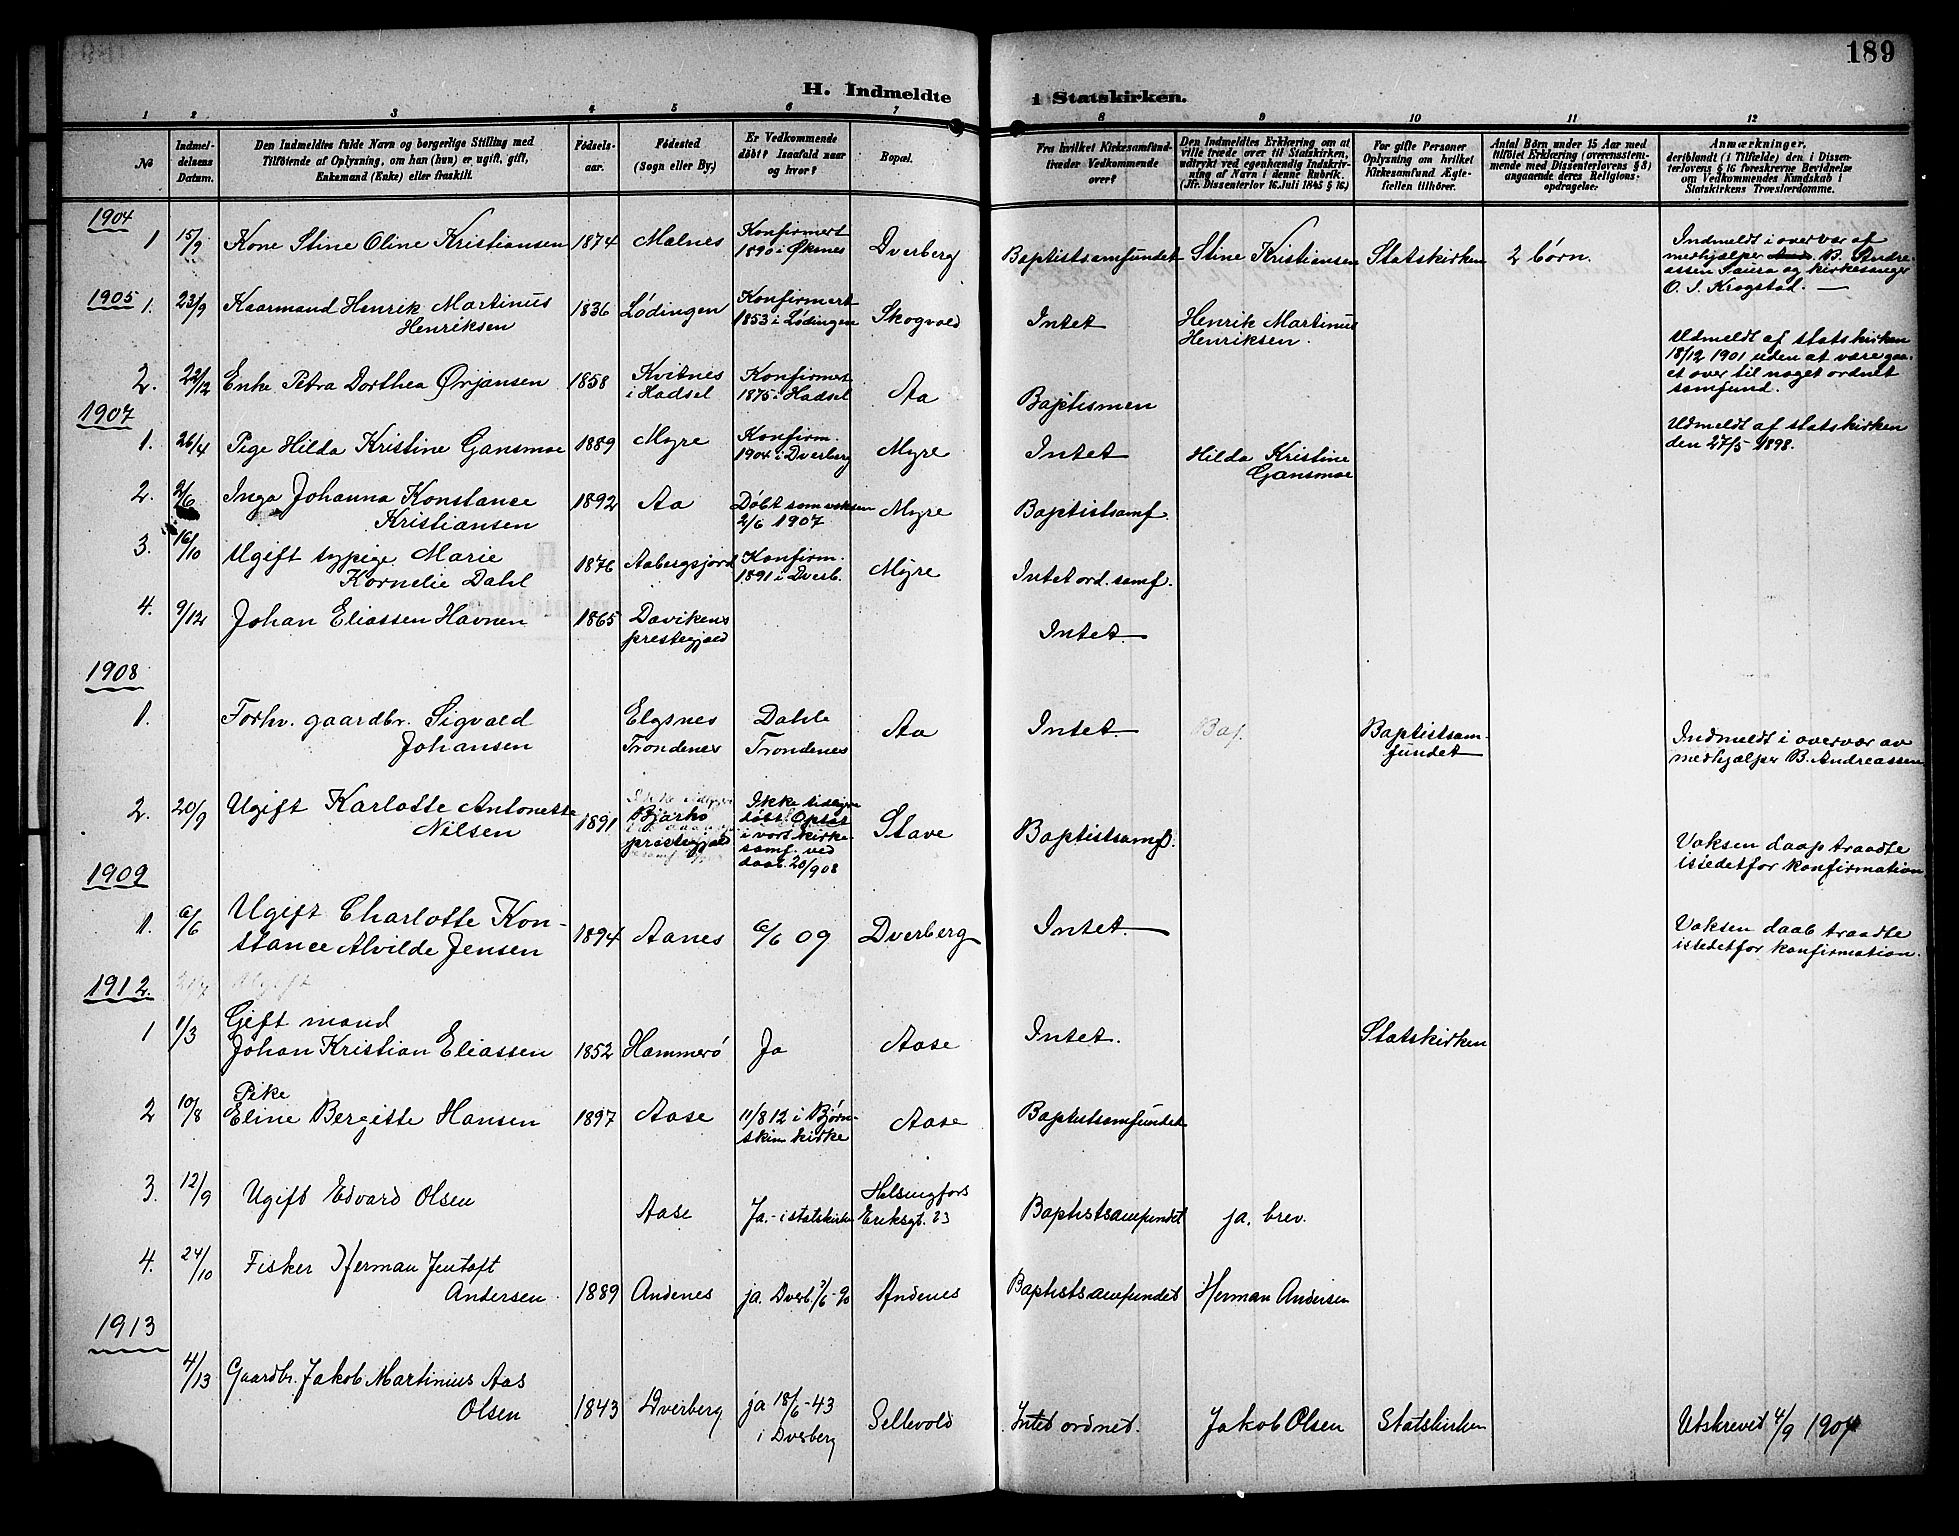 189
H. Indmeldte i Statskirken.
1 2 3 4 5 6 7 8 9 10 11 12
No
Indmeldelsens Datum.
Den Indmeldtes fulde Navn og borgerlige Stilling med
Tilføiende af Oplysning, om han (hun) er ugift, gift,
Enkemand (Enke) eller fraskilt.
Fødselsaar.
Fødested
(Sogn eller By.)
Er Vedkommende
døbt? Isaafald naar
og hvor?
Bopæl.
Fra hvilket Kirkesamfund
træder Vedkommende
over?
Den Indmeldtes Erklæring om at
ville træde over til Statskirken,
udtrykt ved egenhændig Indskriv-
ning af Navn i denne Rubrik.
(Jfr. Dissenterlov 16 Juli 1845 § 16.)
For gifte Personer
Oplysning om hvilket
Kirkesamfund Ægte-
fællen tilhører.
Antal Børn under 15 Aar med
tilføiet Erklæring (overensstem-
mende med Dissenterlovens § 8)
angaaende deres Religions-
opdragelse.
Anmærkninger,
deriblandt (i Tilfælde) den i Dissen-
terlovens § 16 foreskrevne Bevidnelse
om Vedkommendes Kundskab i
Statskirkens Troeslærdomme.
1904
1 15/9 Kone Stine Oline Kristiansen 1874 Malnes Konfirmert
1890 i Øksnes Dverberg Baptistsamfundet Stine Kristiansen Statskirken 2 børn.
Indmeldt i overvær af
medhjælper B. Andre-
assen Saura og kirkesanger
O. J. Krogstad. —
1905
1. 23/9 Kaarmand Henrik Martinus
Henriksen 1836 Lødingen Konfirmert
1853 i Lødingen Skogvold Intet Henrik Martinus
Henriksen.
Udmeldt af statskirken
18/12 1901 uden at være gaa-
et over til noget ordnet
samfund.
2. 22/12 Enke Petra Dorthea Ørjansen 1858 Kvitnes
i Hadsel Konfirmert
1875 i Hadsel Aa Baptismen
1907
1. 26/4 Pige Hilda Kristine Gansmoe 1889 Myre Konfirm.
1904 i Dverberg Myre Intet Hilda Kristine
Gansmoe
Udmeldt af statskirken
den 27/5 1898.
2. 2/6 Inga Johanna Konstance
Kristiansen 1892 Aa Døbt som voksen
2/6 1907 Myre Baptistsamf.
3. 16/10 Ugift sypige Marie
Kornelie Dahl 1876 Aabergsjord Konfirm.
1891 i Dverb. Myre Intet ord. samf.
4. 9/12 Johan Eliassen Havnen 1865 Davikens
prestegjæld Intet.
1908
1. Forhv. gaardbr. Sigvald
Johansen Elgsnes
Trondenes Dahle
Trondenes Aa Intet. Bap. Baptistsam-
fundet
Indmeldt i overvær av
medhjælper B. Andreassen
2. 20/9 Ugift Karlotte Antonette
Nilsen 1891 Bjarkø
prestegjæld Ikke tidligere
døbt. Optat
i vort kirke-
samf. ved
daab. 20/9 08 Stave Baptistsamf.
Voksen daap traadte
istedetfor konfirmation
1909
1. 6/6 Ugift Charlotte Kon-
stance Alvilde Jensen 1894 Aanes 6/6 09 Dverberg Intet.
Voksen daab traadte
istedetfor konfirmation.
1912. Ugift
1 1/3 Gift mand
Johan Kristian Eliassen 1852 Hammerø Ja Aase Intet. Statskirken
2 10/8 Pike
Eline Bergitte Hansen 1897 Aase 11/8 12 i Bjørn-
skin kirke Aase Baptistsamfundet
3. 12/9 Ugift Edvard Olsen Aase Ja. - i statskirke Helsingfors
Eriksgt. 23 Baptistsamfundet ja. brev.
4. 24/10 Fisker Herman Jentoft
Andersen 1889 Andenes ja. Dverb. /6-90 Andenes Baptistsamfundet Herman Andersen
1913
4/13 Gaardbr. Jakob Martinius Aas
Olsen 1843 Dverberg ja 18/6-43
i Dverberg Sellevold Intet ordnet. Jakob Olsen Statskirken Utskrevet 4/9 1904